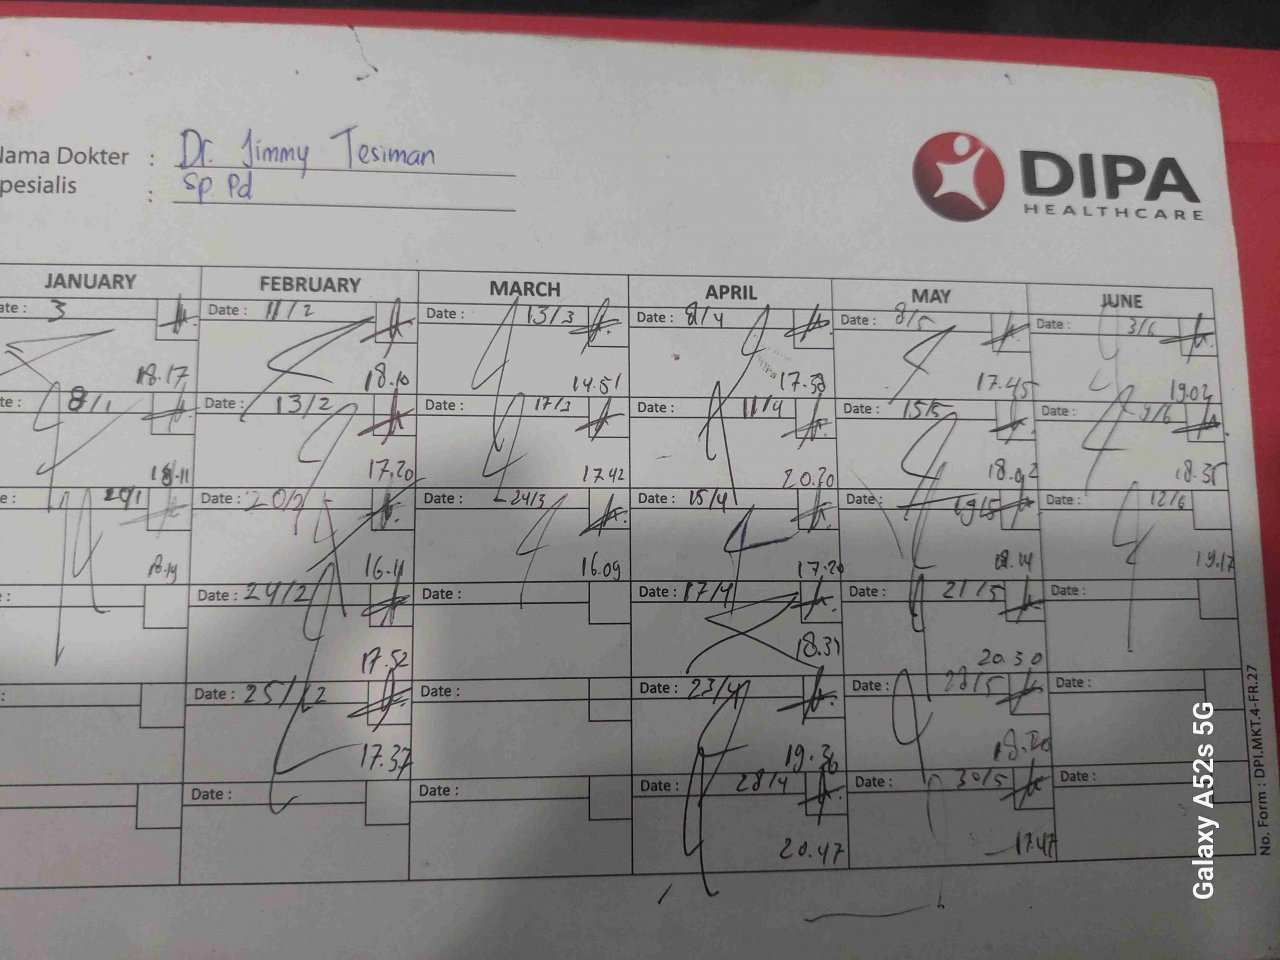 Nama Dokter : Dr. Jimmy Tesiman
Spesialis : Sp Pd
DIPA
HEALTHCARE
JANUARY FEBRUARY MARCH APRIL MAY JUNE
Date : 3 Date : 11/2 Date : 13/3 Date : 8/4 Date : 8/5 Date : 3/6
18.17 18.10 14.51 17.38 17.45 19.02
Date : 8/1 Date : 13/2 Date : 17/3 Date : 11/4 Date : 15/5 Date : 9/6
18.11 17.20 17.42 20.20 18.02 18.35
Date : Date : 20/2 Date : 24/3 Date : 15/4 Date : 19/5 Date : 12/6
18.19 16.11 16.09 17.20 18.14 19.17
Date : 24/2 Date : Date : 17/4 Date : 21/5 Date :
17.52 18.31 20.30
Date : 25/2 Date : Date : 23/4 Date : 28/5 Date :
17.37 19.36 18.20
Date : Date : Date : 28/4 Date : 30/5 Date :
20.47 17.47
No. Form : DPI.MKT.4-FR.27
Galaxy A52s 5G